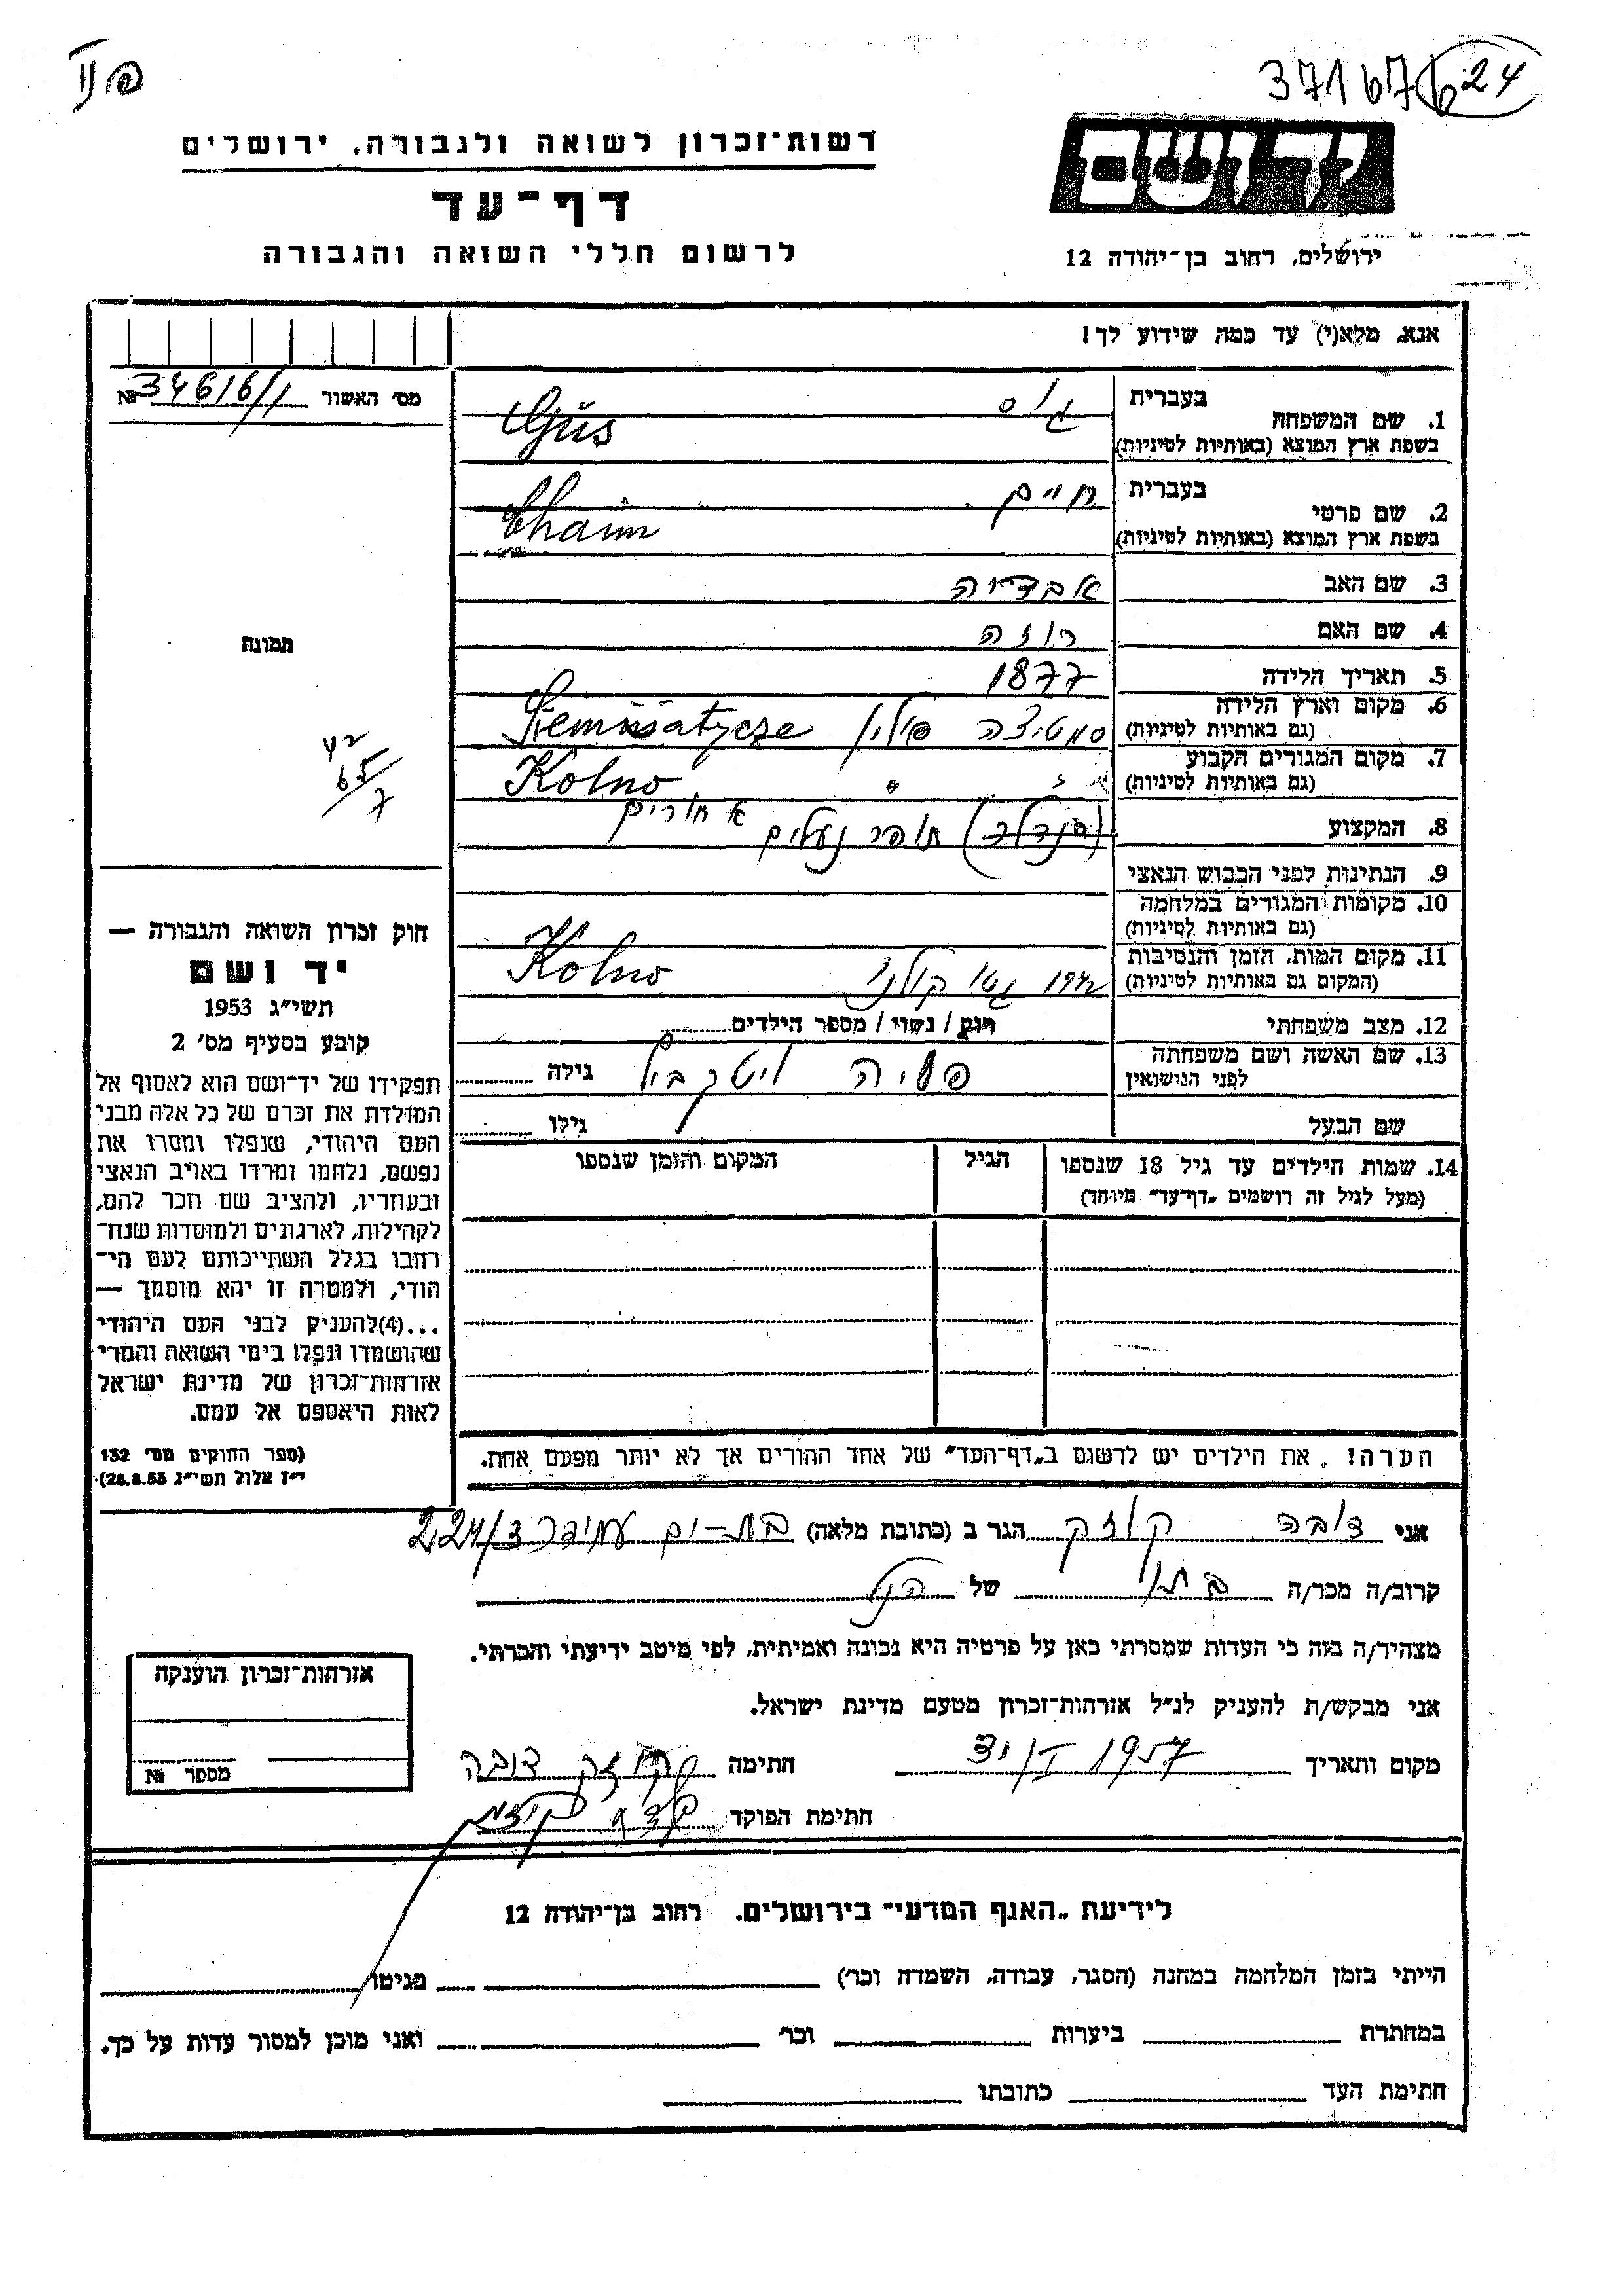 37167624
רשות-זכרון לשואה ולגבורה, ירושלים
יד ושם
דף-עד
לרשום חללי השואה והגבורה
ירושלים, רחוב בן-יהודה 12
אנא, מלא(י) עד כמה שידוע לך!
מס' האשור 34616/1 №
1. שם המשפחה
בעברית גוס
בשפת ארץ המוצא (באותיות לטיניות) Gus
2. שם פרטי
בעברית חיים
בשפת ארץ המוצא (באותיות לטיניות) Chaim
3. שם האב עבדיה
4. שם האם רוזה
תמונה
5. תאריך הלידה 1877
6. מקום וארץ הלידה סמטיצה פולין Siemiatycze
(גם באותיות לטיניות)
7. מקום המגורים הקבוע " Kolno
(גם באותיות לטיניות)
8. המקצוע (סנדלר) תופר נעלים
9. הנתינות לפני הכבוש הנאצי
10. מקומות המגורים במלחמה
(גם באותיות לטיניות)
11. מקום המות, הזמן והנסיבות 1942 גטו קולנו Kolno
(המקום גם באותיות לטיניות)
12. מצב משפחתי רווק / נשוי / מספר הילדים
13. שם האשה ושם משפחתה
לפני הנישואין
גילה
שם הבעל גילו
14. שמות הילדים עד גיל 18 שנספו
(מעל לגיל זה רושמים "דף-עד" מיוחד)
הגיל
המקום והזמן שנספו
הערה! את הילדים יש לרשום ב"דף-העד" של אחד ההורים אך לא יותר מפעם אחת.
חוק זכרון השואה והגבורה —
יד ושם
תשי"ג 1953
קובע בסעיף מס' 2
תפקידו של יד-ושם הוא לאסוף אל
המולדת את זכרם של כל אלה מבני
העם היהודי, שנפלו ומסרו את
נפשם, נלחמו ומרדו באויב הנאצי
ובעוזריו, ולהציב שם וזכר להם,
לקהילות, לארגונים ולמוסדות שנח-
רבו בגלל השתייכותם לעם הי-
הודי, ולמטרה זו יהא מוסמך —
...(4) להעניק לבני העם היהודי
שהושמדו ונפלו בימי השואה והמרי
אזרחות-זכרון של מדינת ישראל
לאות היאספם אל עמם.
(ספר החוקים מס' 132
י"ז אלול תשי"ג 28.8.53)
אני דובה קוזק הגר ב (כתובת מלאה) בת-ים עמידר
קרוב/ה מכר/ה בתו של הנ"ל
מצהיר/ה בזה כי העדות שמסרתי כאן על פרטיה היא נכונה ואמיתית, לפי מיטב ידיעתי והכרתי.
אני מבקש/ת להעניק לנ"ל אזרחות-זכרון מטעם מדינת ישראל.
מקום ותאריך 1957 חתימה קוזק דובה
חתימת הפוקד
אזרחות-זכרון הוענקה
מספר №
לידיעת "האגף המדעי" בירושלים, רחוב בן-יהודה 12
הייתי בזמן המלחמה במחנה (הסגר, עבודה, השמדה וכו') בגיטו
במחתרת ביערות וכו' ואני מוכן למסור עדות על כך.
חתימת העד כתובתו